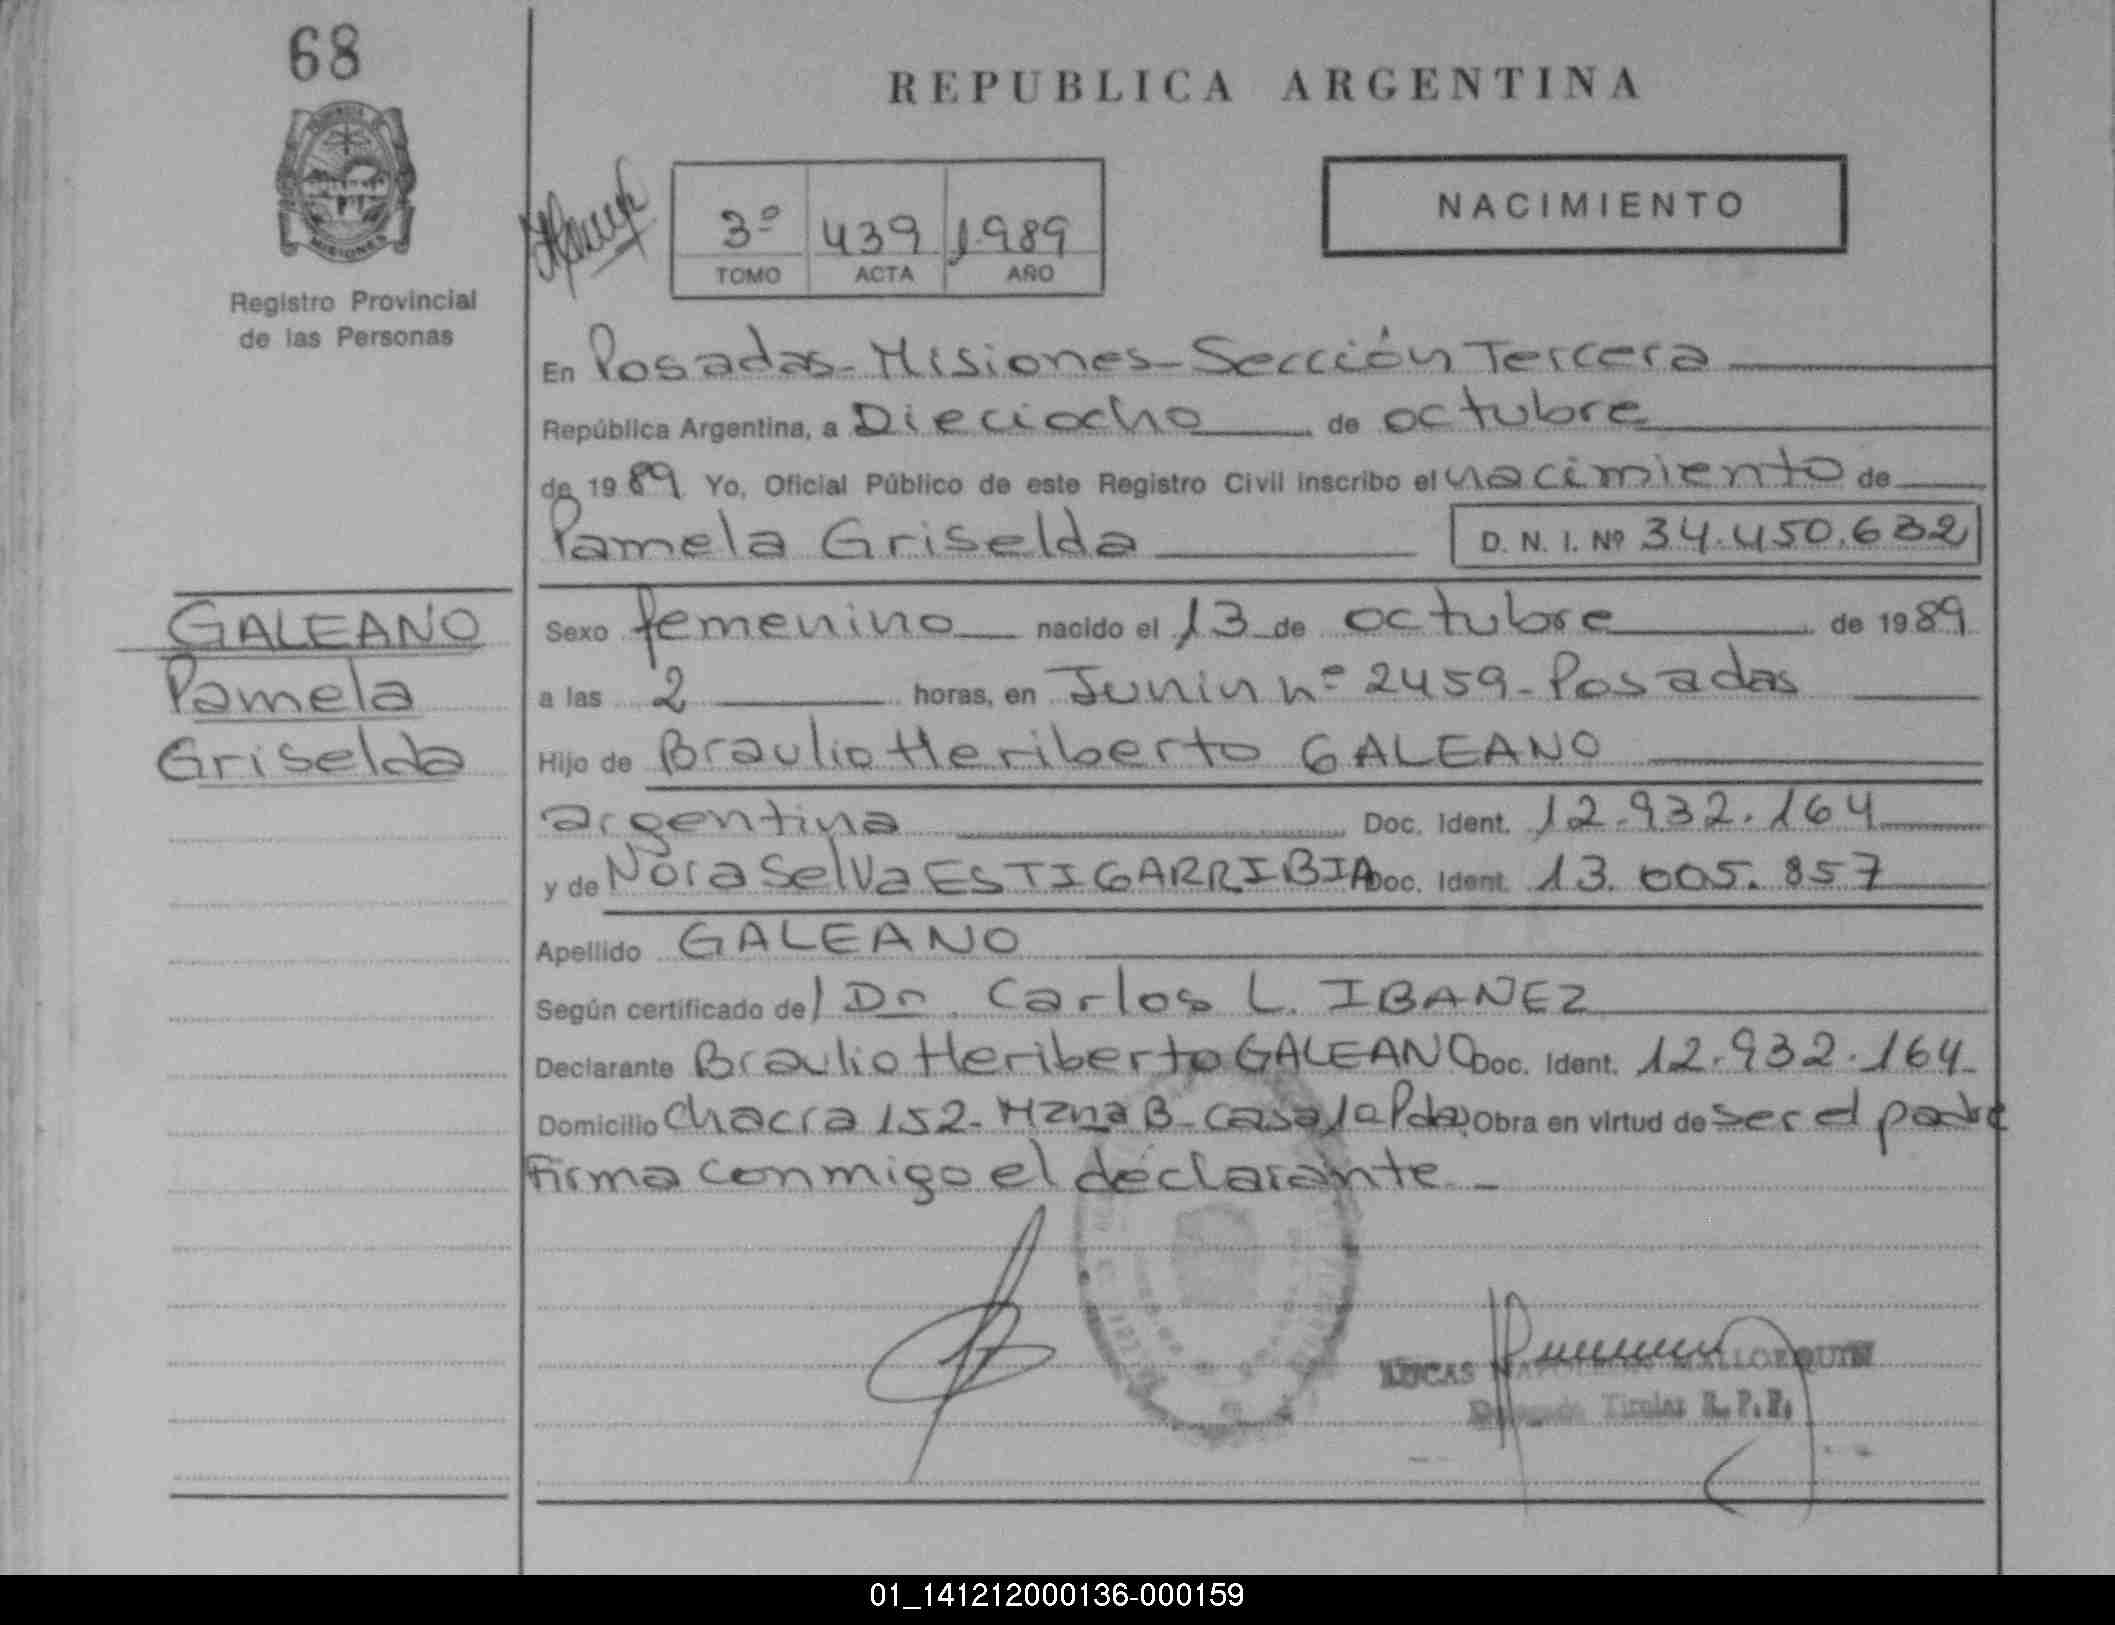 68
REPUBLICA ARGENTINA
NACIMIENTO
3º 439 1989
TOMO ACTA AÑO
Registro Provincial
de las Personas
En Posadas - Misiones - Sección Tercera
República Argentina, a Dieciocho de octubre
de 1989 Yo, Oficial Público de este Registro Civil inscribo el nacimiento de
Pamela Griselda D. N. I. Nº 34.450.632
GALEANO
Pamela
Griselda
Sexo femenino nacido el 13 de octubre de 1989
a las 2 horas, en Junin nº 2459 - Posadas
Hijo de Braulio Heriberto GALEANO
argentina Doc. Ident. 12.932.164
y de Nora Selva ESTIGARRIBIA Doc. Ident. 13.005.857
Apellido GALEANO
Según certificado de/ Dr. Carlos L. IBANEZ
Declarante Braulio Heriberto GALEANO Doc. Ident. 12.932.164
Domicilio Chacra 152 - Mzna B - casa 10 Pdas Obra en virtud de ser el padre
Firma conmigo el declarante
LUCAS MALLORQUIN
Titular R.P.P.
01_141212000136-000159